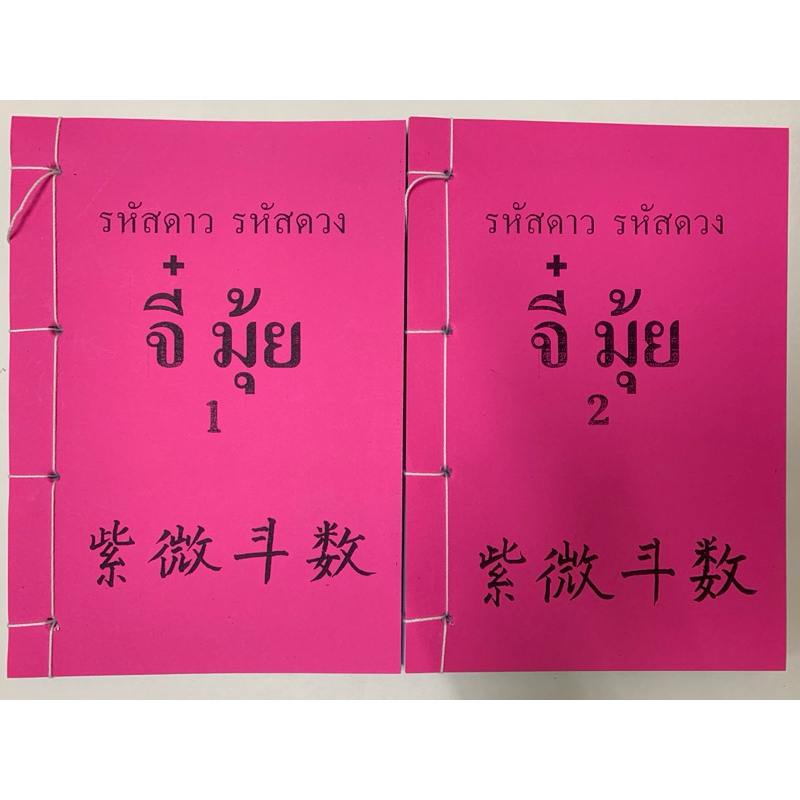 รหัสดาว รหัสดวง
จี๋ มุ้ย
1
紫微斗数
รหัสดาว รหัสดวง
จี๋ มุ้ย
2
紫微斗数